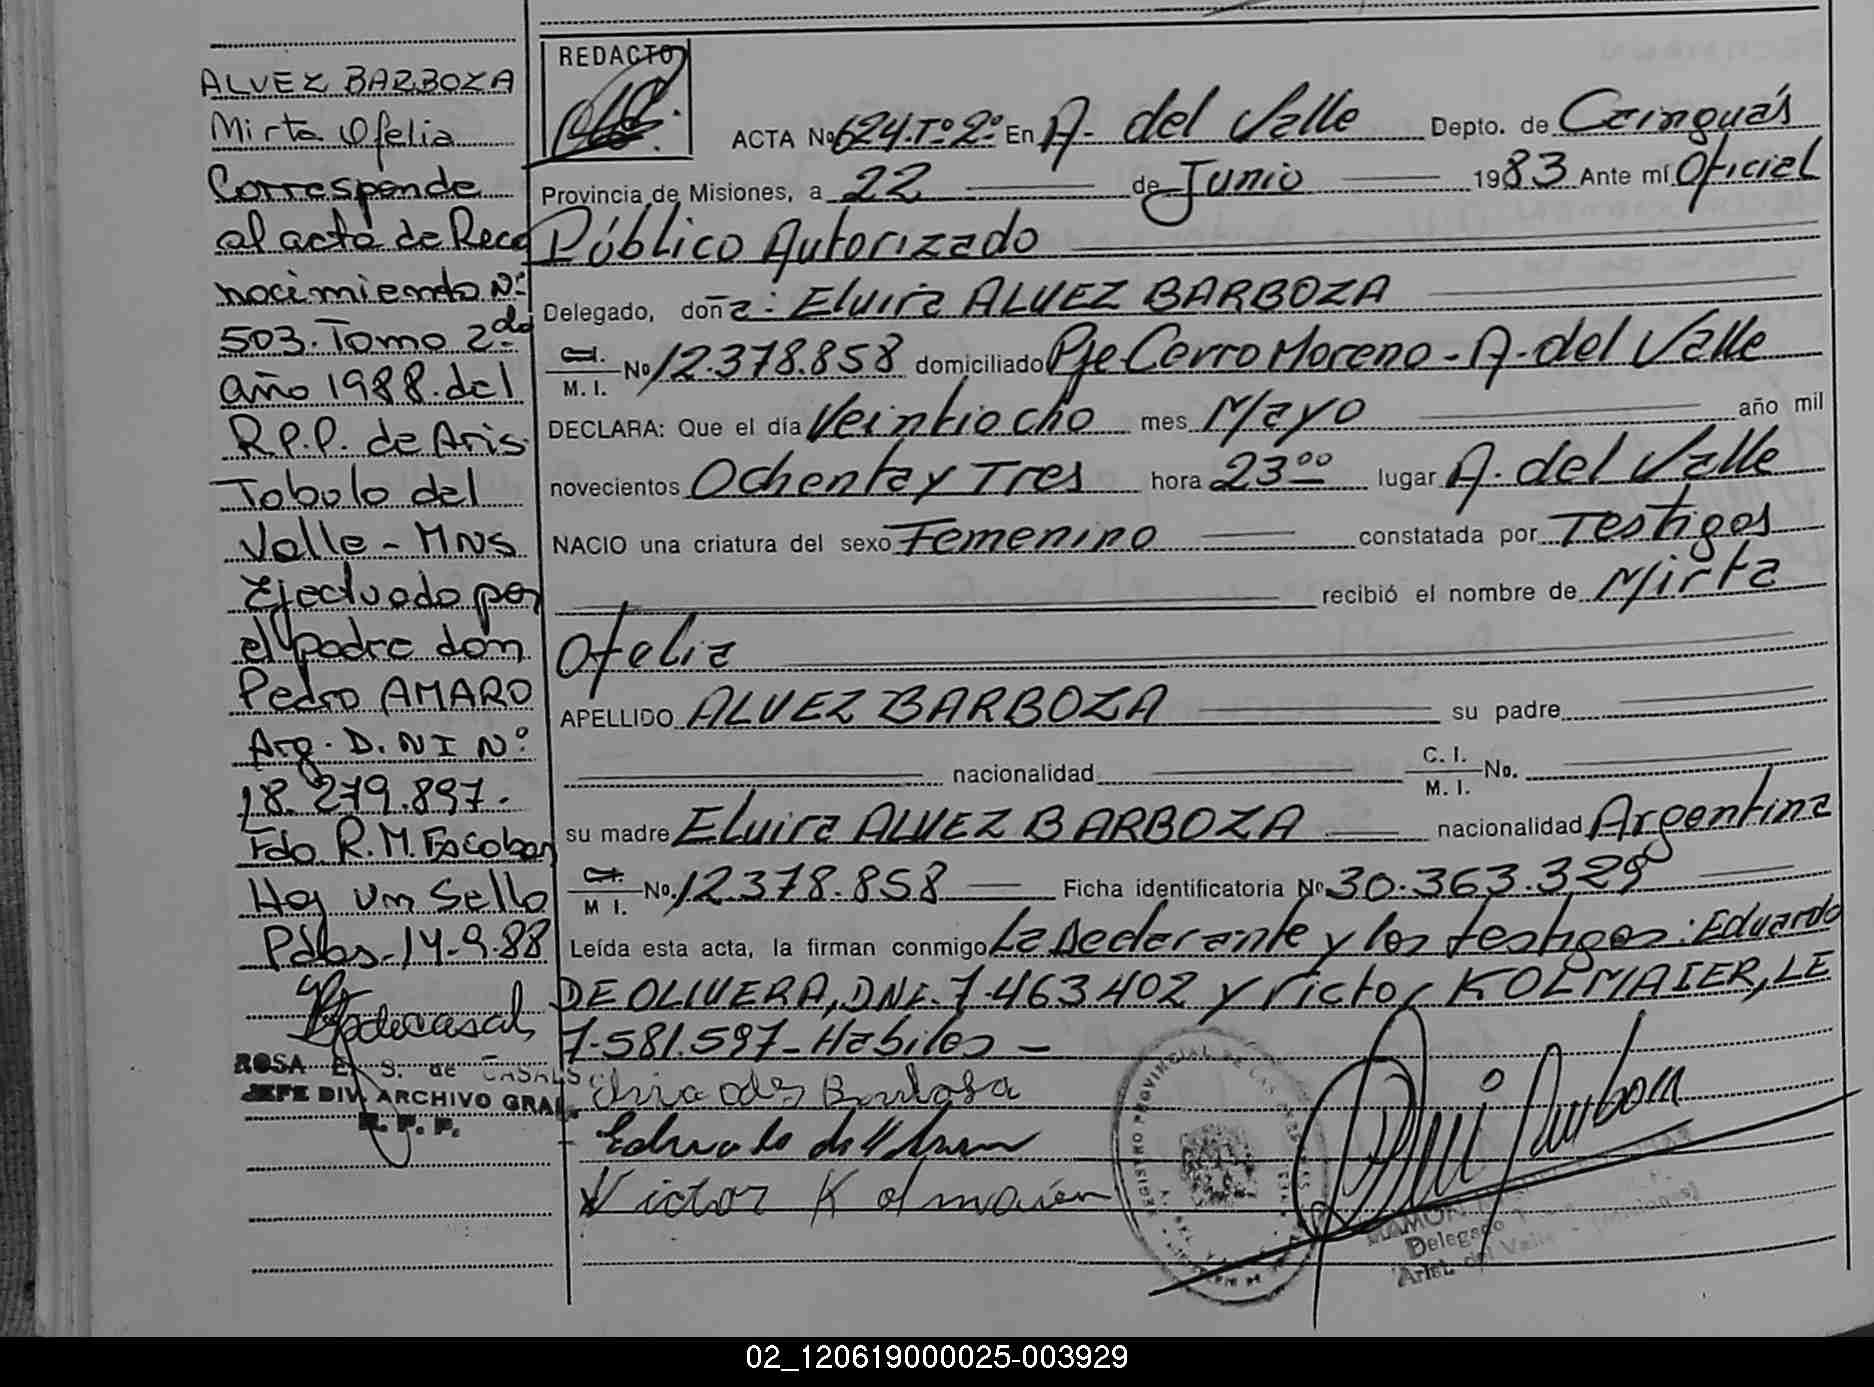 ALVEZ BARBOZA
Mirta Ofelia
Corresponde
al acta de Reco
nocimiento Nº
503. Tomo 2do
año 1988. del
R.P.P. de Aris
Tobulo del
Valle - MNS
Efectuado por
el padre don
Pedro AMARO
Arg. D.NI Nº
18.279.897.
Fdo R.M. Escobar
Hay un Sello
Pdas. 14-9-88
ROSA E. S. de CASALS
JEFE DIV. ARCHIVO GRAL.
R. P. P.
REDACTO
ACTA Nº 624.Tº2º En A. del Valle Depto. de Cainguás
Provincia de Misiones, a 22 de Junio 1983 Ante mí Oficial
Público Autorizado
Delegado, doña: Elvira ALVEZ BARBOZA
C.I.
M. I. Nº 12.378.858 domiciliado Pje Cerro Moreno - A. del Valle
DECLARA: Que el día Veintiocho mes Mayo año mil
novecientos Ochenta y Tres hora 23 00 lugar A. del Valle
NACIO una criatura del sexo Femenino constatada por Testigos
recibió el nombre de Mirta
Ofelia
APELLIDO ALVEZ BARBOZA su padre
nacionalidad C. I.
M. I. No.
su madre Elvira ALVEZ BARBOZA nacionalidad Argentina
C.I.
M I. No. 12.378.858 Ficha identificatoria Nº 30.363.329
Leída esta acta, la firman conmigo La Declarante y los testigos: Eduardo
DE OLIVERA, DNI. 7.463.402 y Victor KOLMAIER, LE
7.581.597 - Habiles -
Victor Kolmaier
REGISTRO PROVINCIAL DE LAS PERSONAS
RAMON
Delegado
Arist. del Valle - (Misiones)
02_120619000025-003929